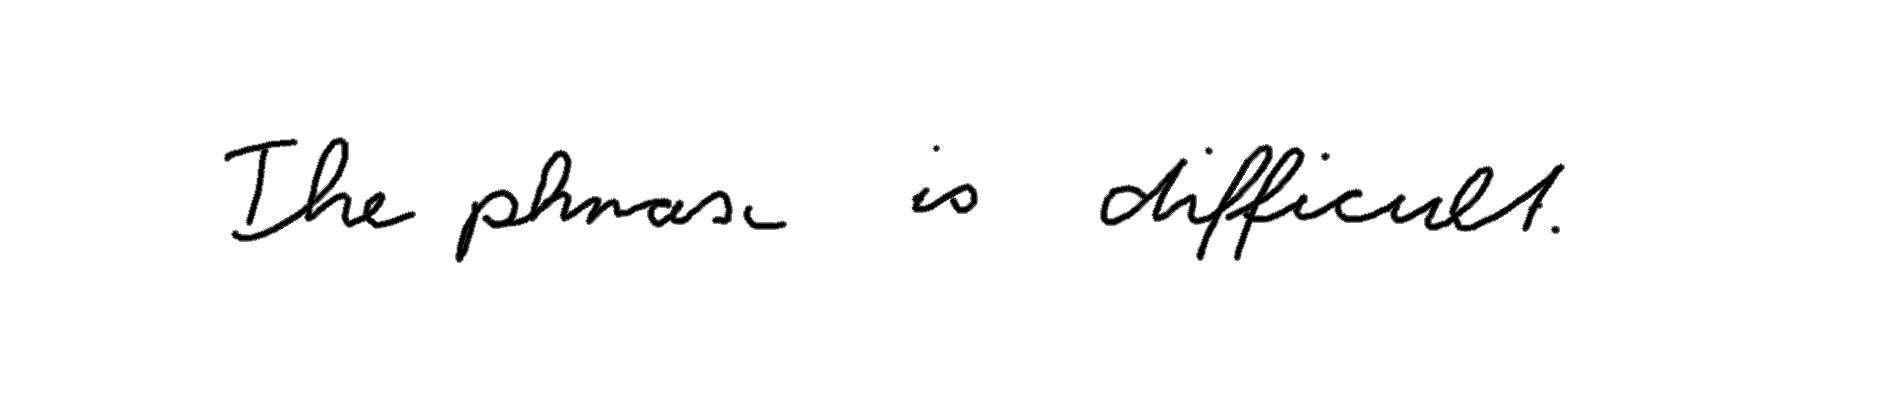 The phrase is difficult.